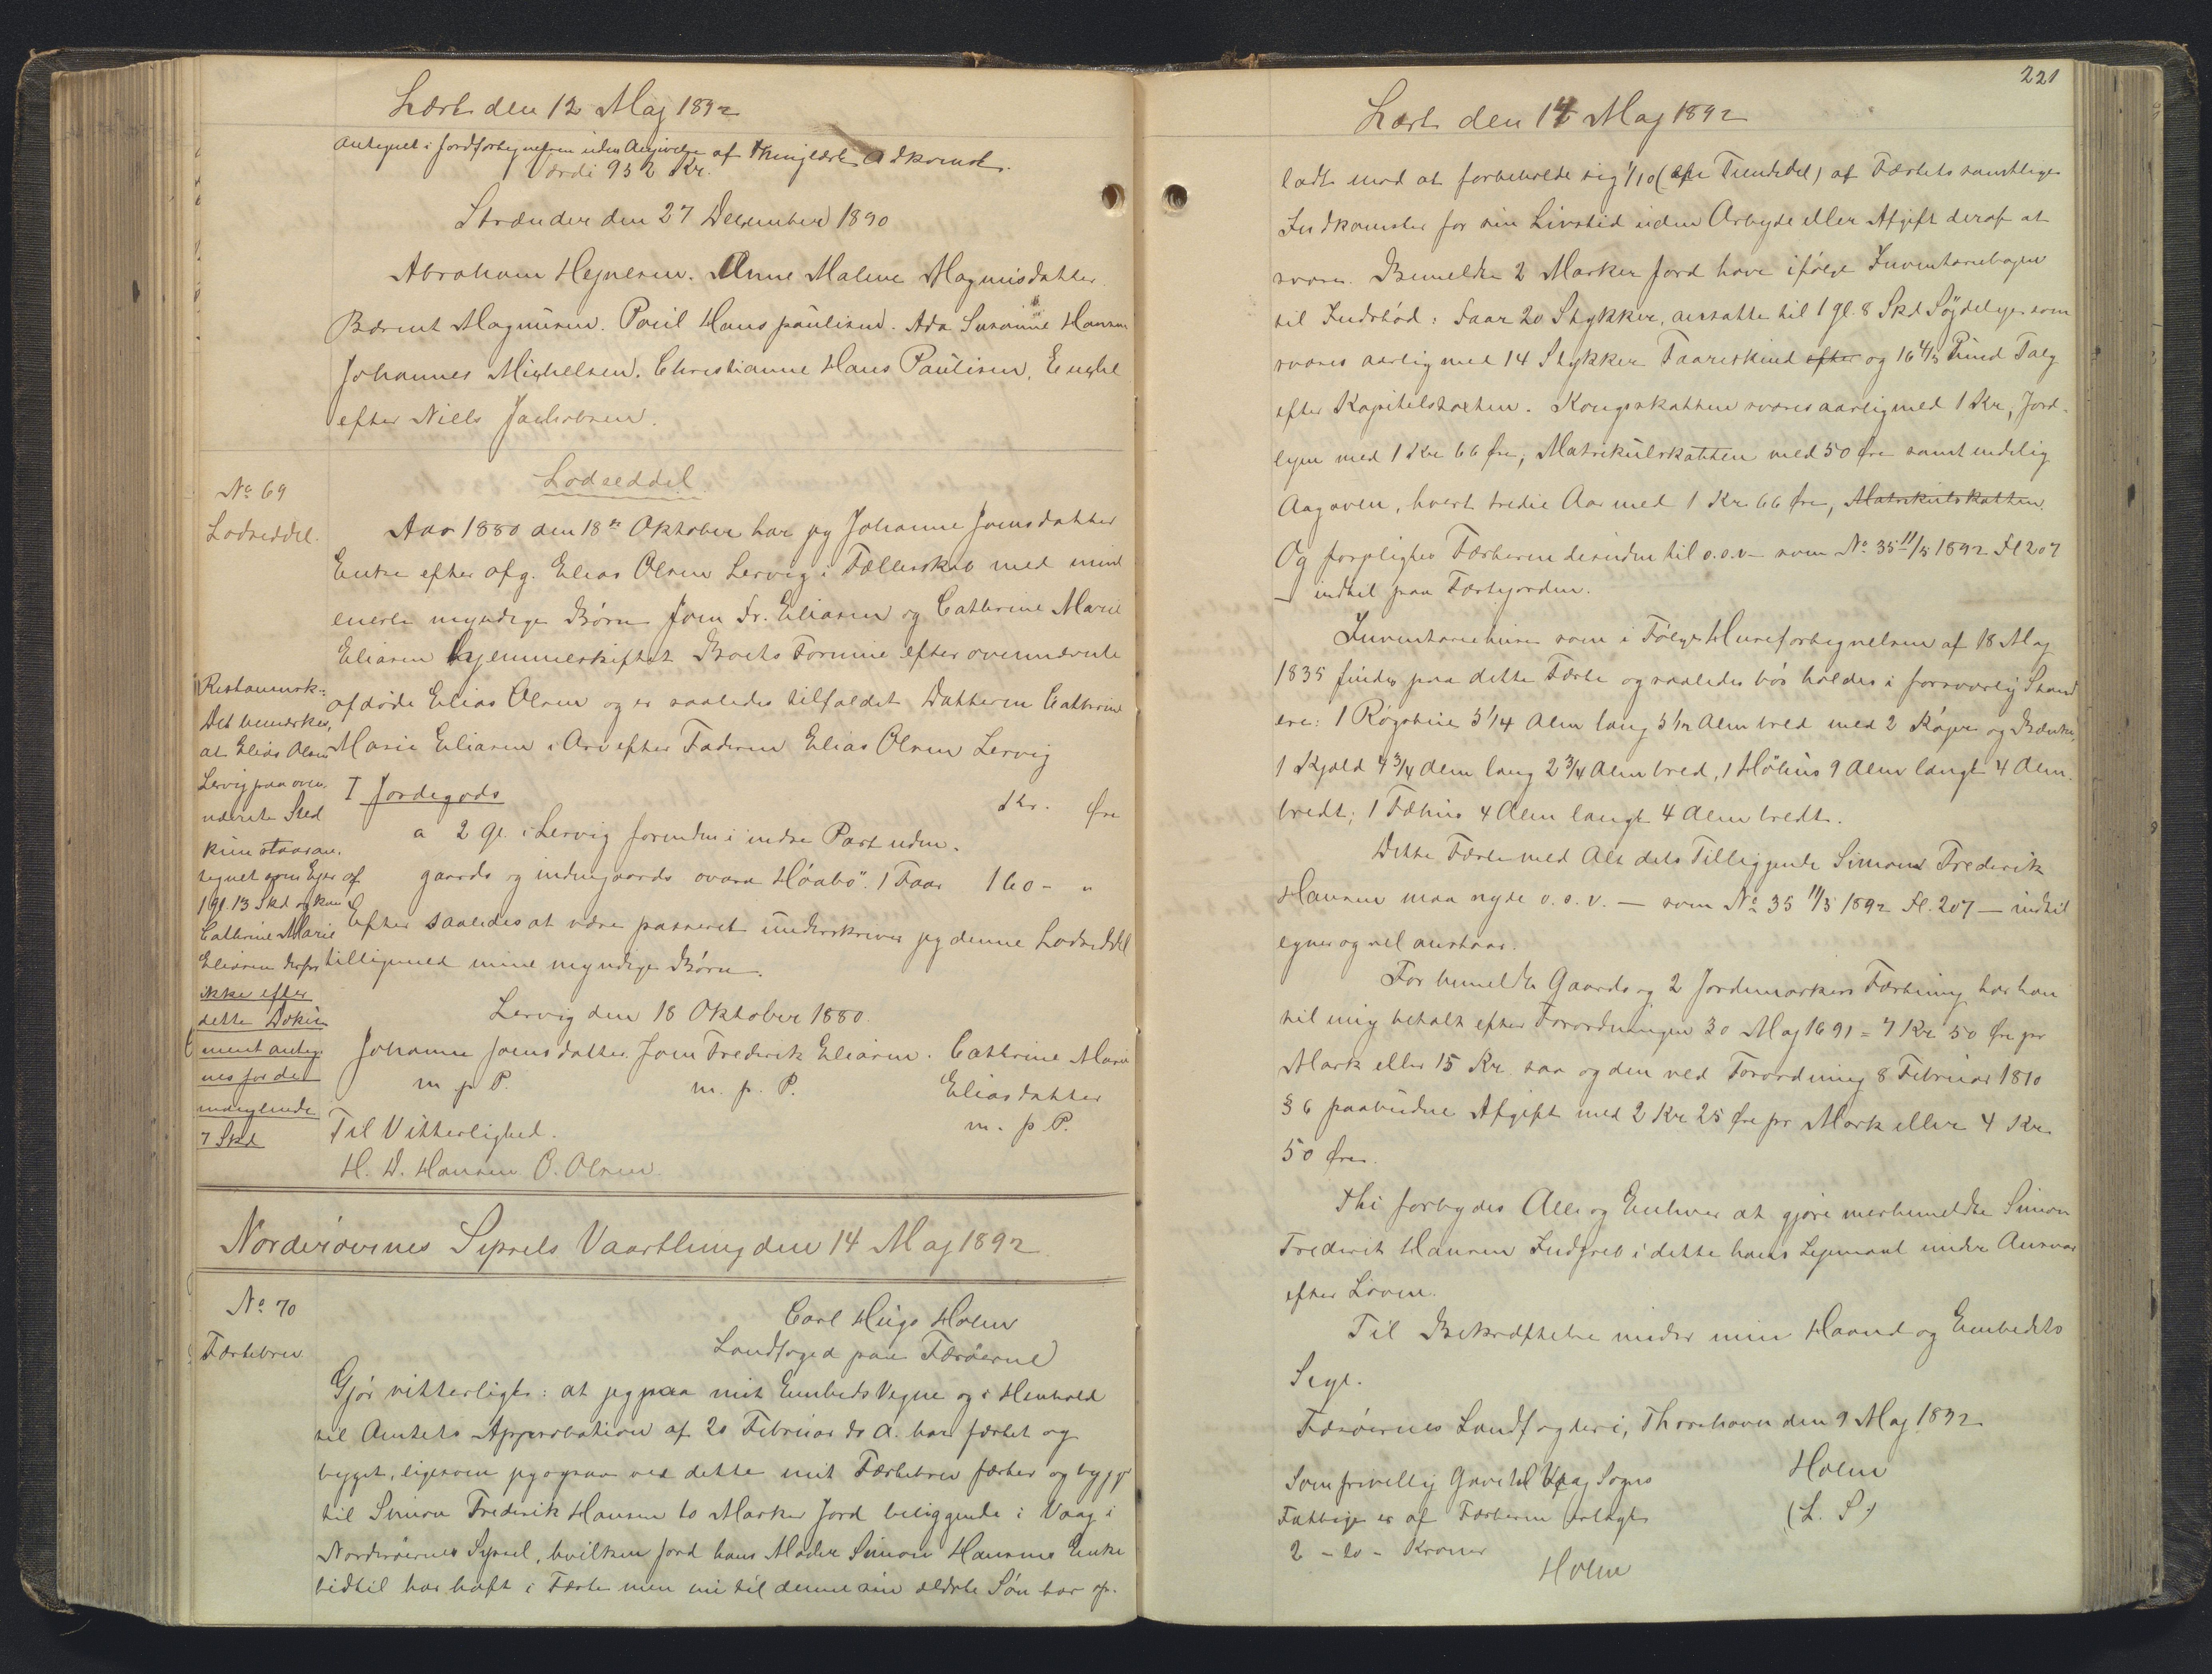 Læst den 12 Maj 1892
antegnet i Jordfortegnelsen uden Angivelse af Thinglæst Adkomst.
Værdi 952 Kr.
Strænder den 27 December 1890
Abraham Hejnesen. Anne Malene Magnusdatter
Berent Magnusen. Poul Hans Paulisen. Ada Susanne Hansen
Johannes Michelsen. Christianne Hans Paulisen, Enghe
efter Niels Jacobsen.
No 69
Lodseddel.
Lodseddel
Aar 1880 den 18de Oktober har jeg Johanne Joensdatter
Enke efter afg. Elias Olsen Lervig i Fællesskab med mine
eneste myndige Børn Joen Fr. Eliasen og Cathrine Marie
Eliasen hjemmeskiftet Boets Formue efter ovennævnte
afdøde Elias Olsen og er saaledes tilfaldet Datteren Cathrine
Marie Eliasen i Arv efter Faderen Elias Olsen Lervig
I Jordegods Kr. Øre
a 2 gl. i Lervig forenden i indre Part uden-
gaards og indengaards ovara Høabø". 1 Faar 160 - "
Efter saaledes at være passeret underskriver jeg denne Lodseddel
tilligemed mine myndige Børn.
Lervig den 18 Oktober 1880.
Johanne Joensdatter. Joen Frederik Eliasen. Cathrine Marie
m. p. P. m. p. P. Eliasdatter
m. p. P.
Til Vitterlighed.
H. D. Hansen O. Olsen
Restanmærk:
Det bemærkes,
at Elias Olsen
Lervig paa oven-
nævnte Sted
kun staar an-
tegnet som Ejer af
1 gl. 13 Skd og kan
Cathrine Marie
Eliasen derfor
ikke efter
dette Doku-
ment anteg-
nes for de
manglende
7 Skd
Norderøernes Syssels Vaarthing den 14 Maj 1892.
No 70
Fæstebrev
Carl Hugo Holm
Landfoged paa Færøerne
Gjør vitterligt: at jeg paa mit Embeds Vegne og i Henhold
til Amtets Approbation af 20 Februar ds A. har fæstet og
bygget, ligesom jeg ogsaa ved dette mit Fæstebrev fæster og bygger
til Simon Frederik Hansen to Marker Jord beliggende i Vaag i
Norderøernes Syssel, hvilken Jord hans Moder Simon Hansens Enke
hidtil har haft i Fæste men nu til denne sin ældste Søn har op-
221
Læst den 14 Maj 1892
ladt mod at forbeholde sig 1/10 (een Tiendedel) af Fæstets samtlige
Indkomster for sin Livstid uden Arbejde eller Afgift deraf at
svare. Bemeldte 2 Marker Jord have ifølge Inventariebogen
til Indstød: Faar 20 Stykker, ansatte til 1 gl. 8 Skd Søjdeleje som
svares aarlig med 14 Stykker Faareskind efter og 16 4/5 Pund Talg
efter Kapitelstaxten. Kongsskatten svares aarlig med 1 Kr, Jord-
lejen med 1 Kr 66 Øre, Matrikulskatten med 50 Øre samt endelig
Aagaven, hvert tredie Aar med 1 Kr 66 Øre, Matrikulskatten.
Og forpligter Fæsteren desuden til o.s.v. som No 35 11/5 1892 Fl 207
— indtil paa Fæstejorden.
Inventariehuse som i Følge Husefortegnelsen af 18 Maj
1835 findes paa dette Fæste og saaledes bør holdes i forsvarlig Stand
ere: 1 Røgstue 5 1/4 Alen lang 5 1/2 Alen bred med 2 Køjer og Bænke,
1 Kjæld 4 3/4 Alen lang 2 3/4 Alen bred, 1 Høhus 9 Alen langt 4 Alen
bredt; 1 Fæhus 4 Alen langt 4 Alen bredt.
Dette Fæste med Alt dets Tilliggende Simon Frederik
Hansen maa nyde o. s. v. — som No 35 11/5 1892 Fl. 207 — indtil
egner og vel anstaar.
For bemeldte Gaards og 2 Jordemarkers Fæstning har han
til mig betalt efter Forordningen 30 Maj 1691 = 7 Kr 50 Øre pr
Mark eller 15 Kr. saa og den ved Forordning 8 Februar 1810
§ 6 paabudne Afgift med 2 Kr 25 Øre pr Mark eller 4 Kr
50 Øre.
Thi forbydes Alle og Enhver at gjøre merbemeldte Simon
Frederik Hansen Indgreb i dette hans Lejemaal under Ansvar
efter Loven.
Til Bekræftelse under min Haand og Embedets
Segl.
Færøernes Landfogderi, Thorshavn den 9 Maj 1892
Holm
(L. S.)
Som frivillig Gave til Vaag Sogns
Fattige er af Fæsteren erlagt
2 - to - Kroner
Holm